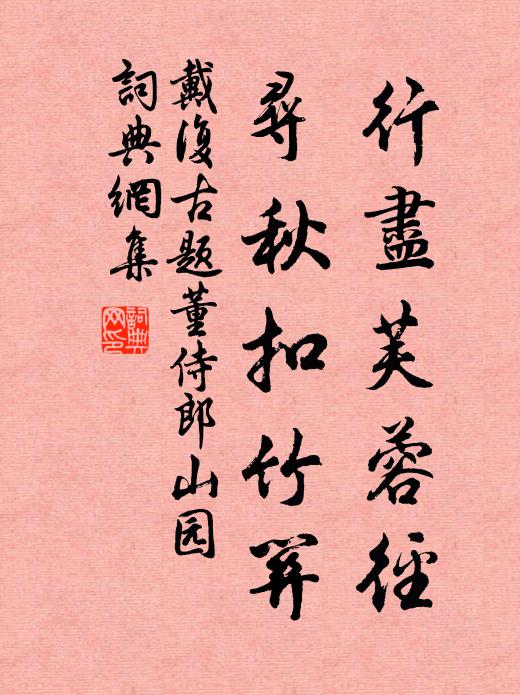 行盡芙蓉徑
尋秋扣竹關
戴復古題董侍郎山园
詞典網集
詞典网印